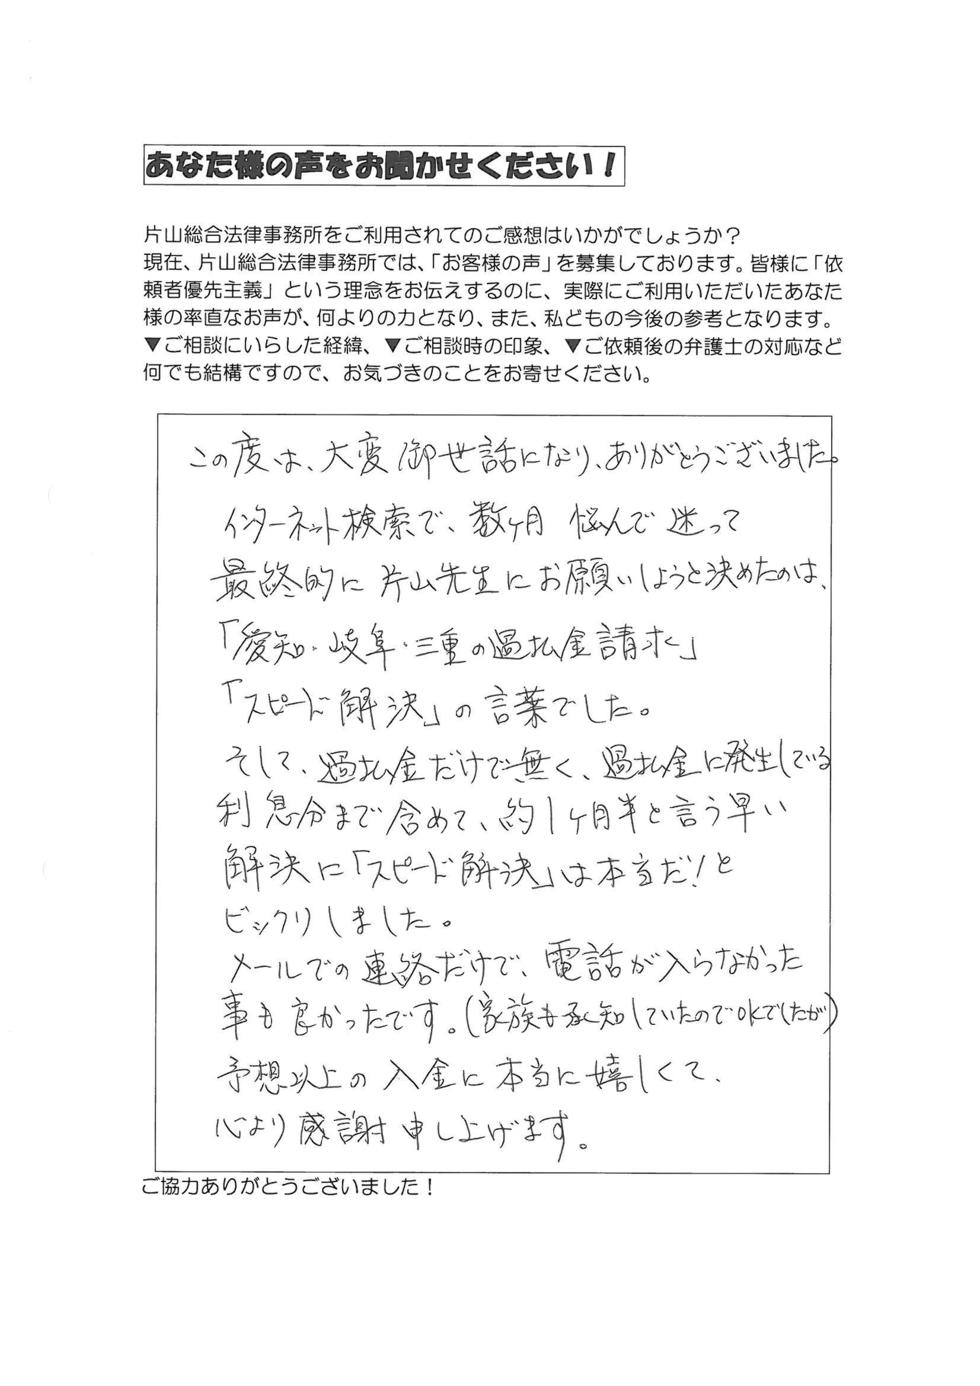 あなた様の声をお聞かせください！
片山総合法律事務所をご利用されてのご感想はいかがでしょうか？
現在、片山総合法律事務所では、「お客様の声」を募集しております。皆様に「依
頼者優先主義」という理念をお伝えするのに、実際にご利用いただいたあなた
様の率直なお声が、何よりの力となり、また、私どもの今後の参考となります。
▼ご相談にいらした経緯、▼ご相談時の印象、▼ご依頼後の弁護士の対応など
何でも結構ですので、お気づきのことをお寄せください。
この度は、大変御世話になり、ありがとうございました。
インターネット検索で、数ヶ月 悩んで 迷って
最終的に 片山先生にお願いしようと決めたのは、
「愛知・岐阜・三重の過払金請求」
「スピード解決」の言葉でした。
そして、過払金だけで無く、過払金に発生している
利息分まで含めて、約1ヶ月半と言う早い
解決に「スピード解決」は本当だ!と
ビックリしました。
メールでの連絡だけで、電話が入らなかった
事も良かったです。(家族も承知していたのでOKでしたが)
予想以上の入金に本当に嬉しくて、
心より感謝申し上げます。
ご協力ありがとうございました！